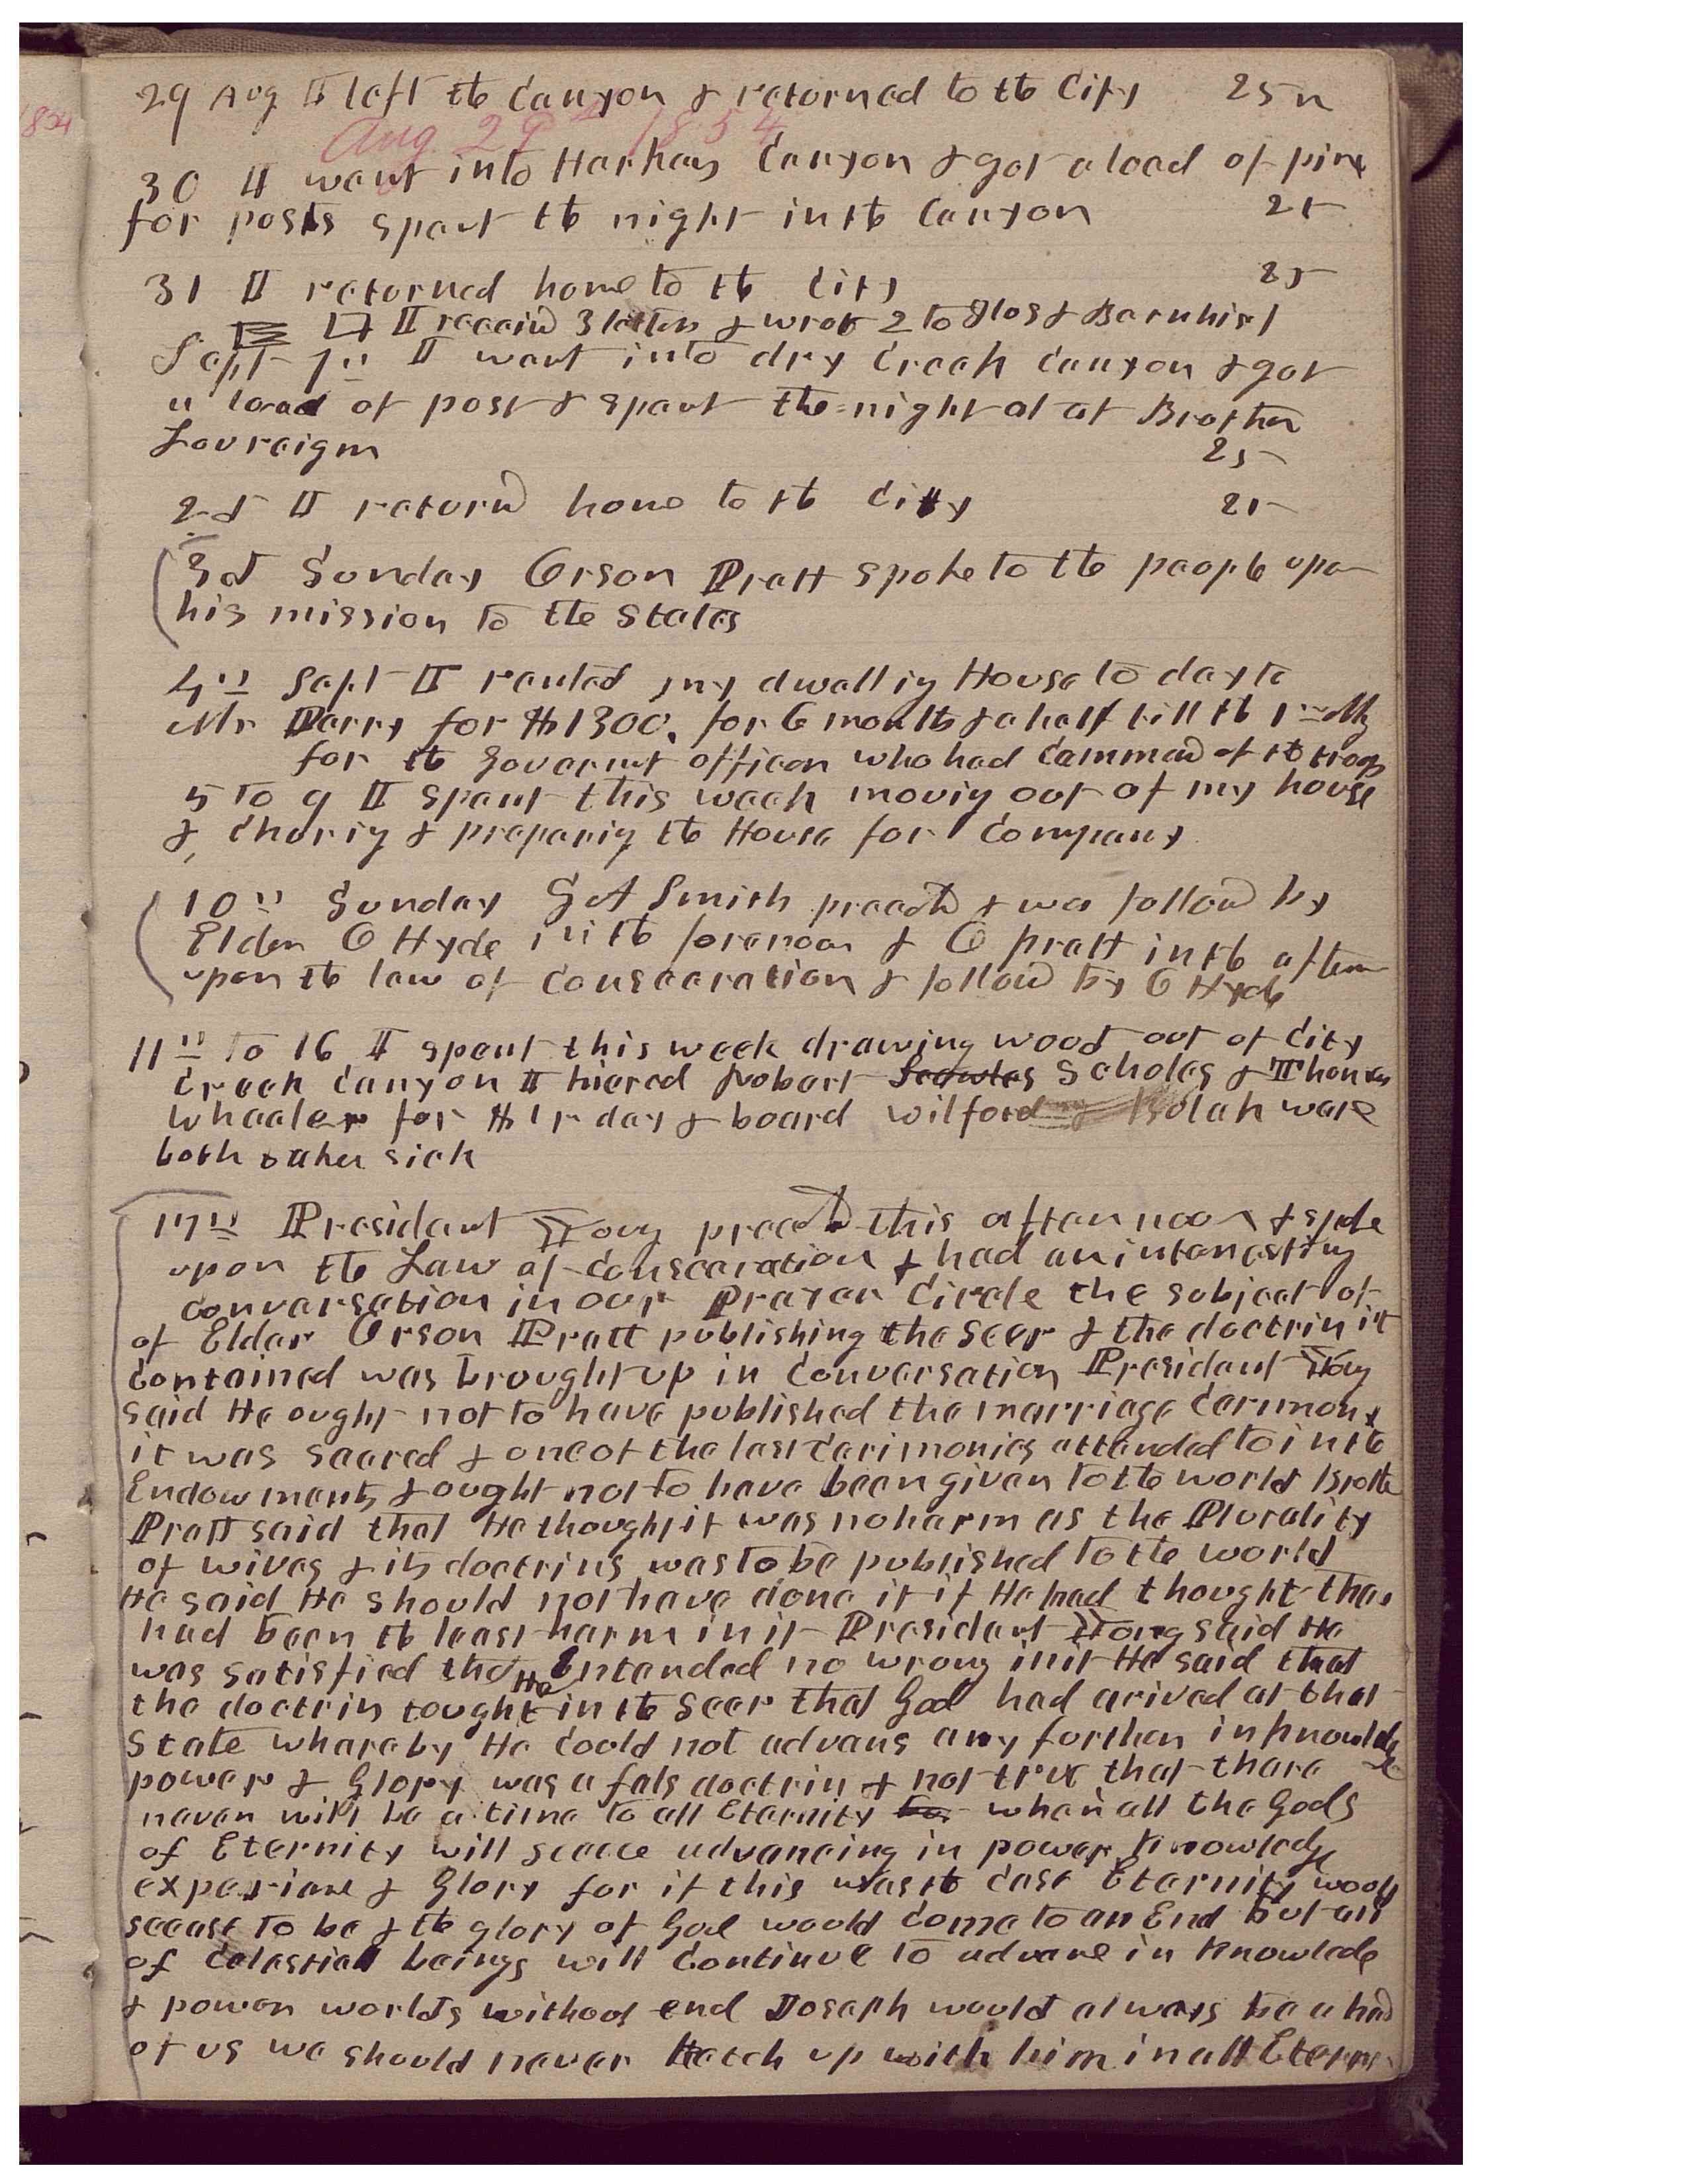 29 Aug I left the Canyon & returned to the City 25 m
Aug. 29th 1854
30 I went into Harkers Canyon & got a load of pine
for posts spent the night in the Canyon 25
31 I returned home to the City 25
I receivd 3 letters & wrote 2 to & Barnhisl
Sept 1st I went into dry Creek Canyon & got
a load of post & spent the night at at Brother
Lovreign 25
2d I returnd home to the City 25
3d Sunday Orson Pratt spoke to the people upon
his mission to the States
4th Sept I rented my dwellig House to day to
Mr Perry for $1300. for 6 months & a half till the 1st
for the Goverment officers who had Command of the troops
5 to 9 I spent this week movig out of my house
& & preparig the House for Company
10th Sunday G A Smith preachd & was followd by
Elder O Hyde in the forenoon & O pratt in the aftern
upon the law of Consecration & followd by O Hyde
11th to 16 I spent this week drawing wood out of City
Creek Canyon I hiered Robart Scholes & Thomas
Wheeler for $1 pr day & board Wilford & Bulah ware
both taken sick
17th President Young preachd this afternoon & spoke
upon the Law of Consecration & had an interesting
conversation in our Prayer Circle the subject of
of Elder Orson Pratt publishing the Seer & the doctrin it
Contained was brought up in Conversation President Young
said He ought not to have published the marriage Cerimony
it was sacred & one of the last Cerimonies attended to in the
Endowments & ought not to have been given to the world Brother
Pratt said that He thought it was no harm as the Plurality
of wives & its doctrins was to be published to the world
He said He should not have done it if He had thought thare
had been the least harm in it President Young said He
was satisfied that He Intended no wrong in it He said that
the doctrin tought in the Seer that God had arived at that
State whareby He Could not advans any further in knowledge
power & Glory was a fals doctrin & not true that thare
never will be a time to all Eternity when all the Gods
of Eternity will scease advancing in power knowledge
experiane & Glory for if this was the Case Eternity would
scease to be & the glory of God would Come to an End but all
of Celestial beings will Continue to advane in knowlede
& power worlds without end Joseph would always be a head
of us we should never Ketch up with him in all Eterni